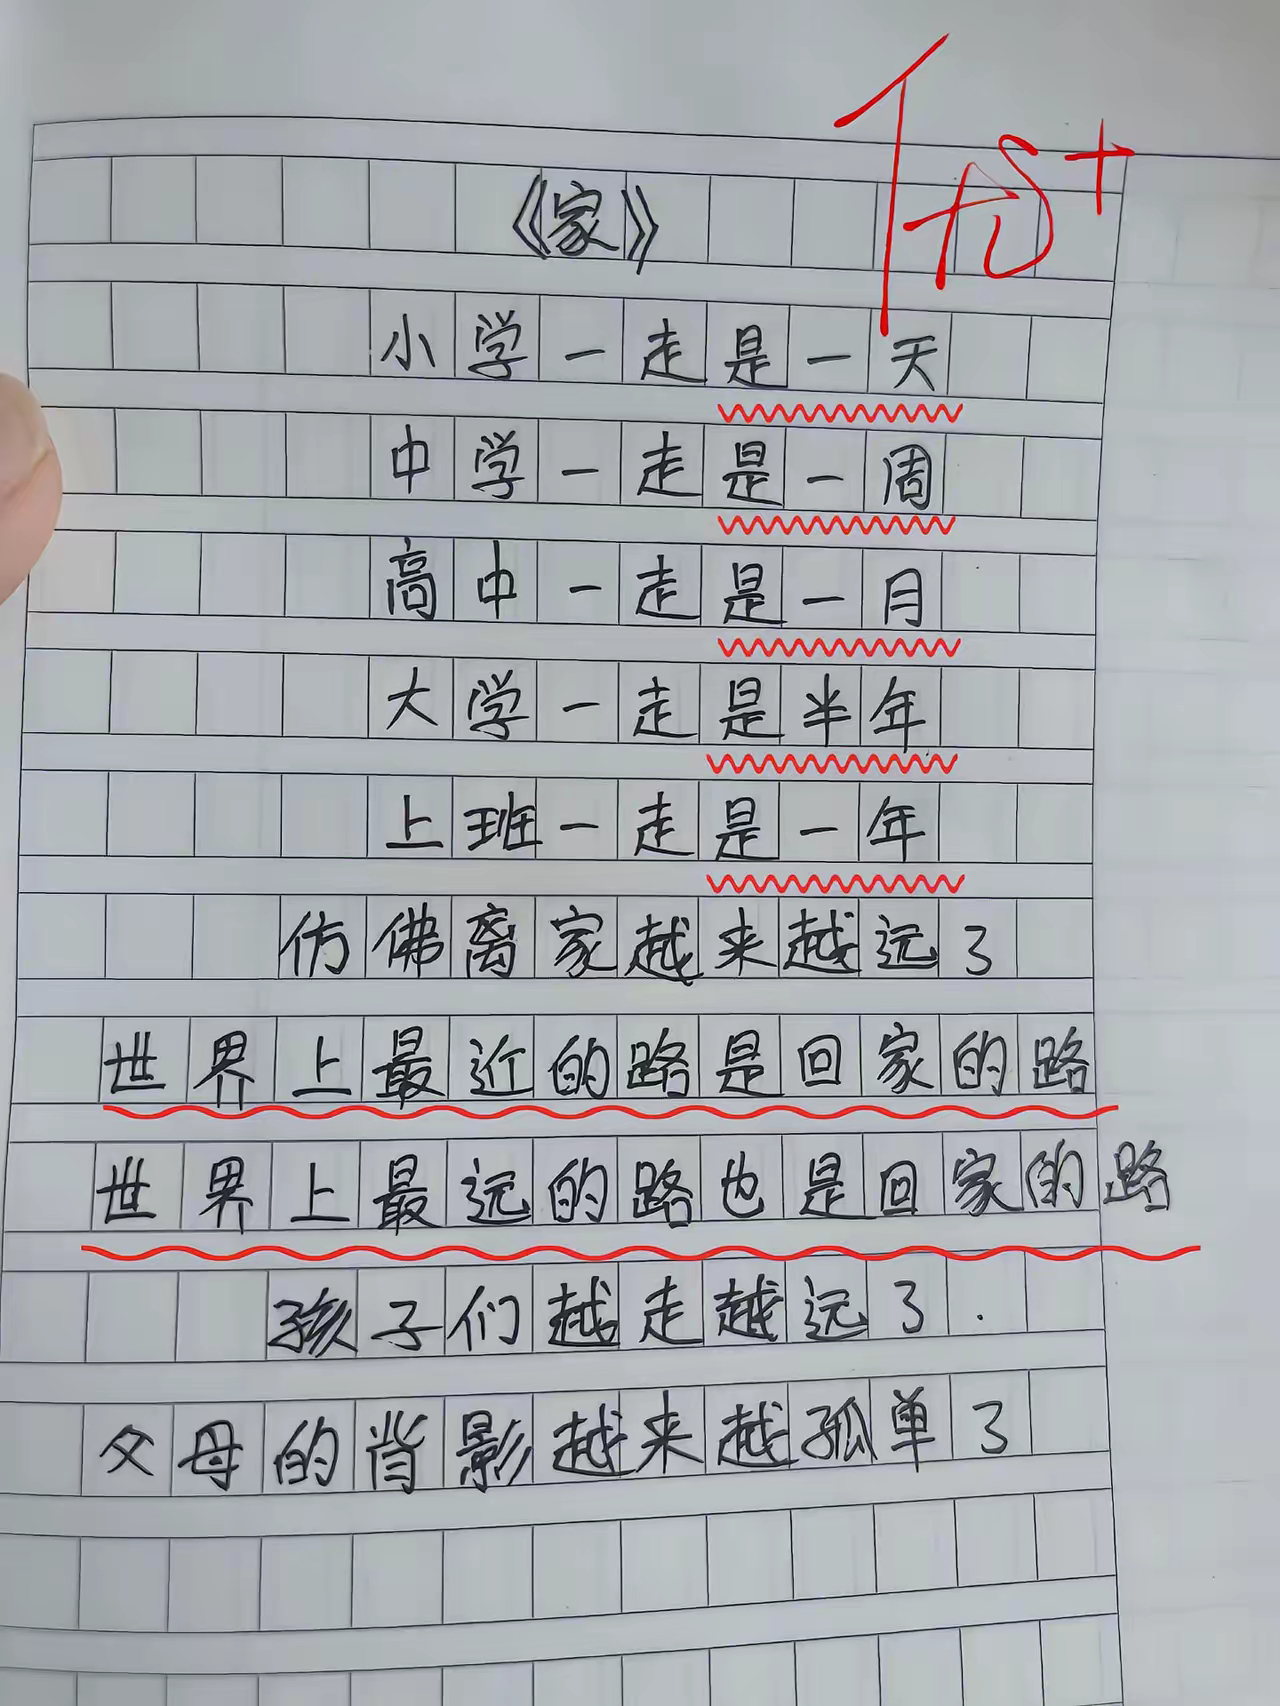 优+
《家》
小学一走是一天
中学一走是一周
高中一走是一月
大学一走是半年
上班一走是一年
仿佛离家越来越远了
世界上最近的路是回家的路
世界上最远的路也是回家的路
孩子们越走越远了.
父母的背影越来越孤单了